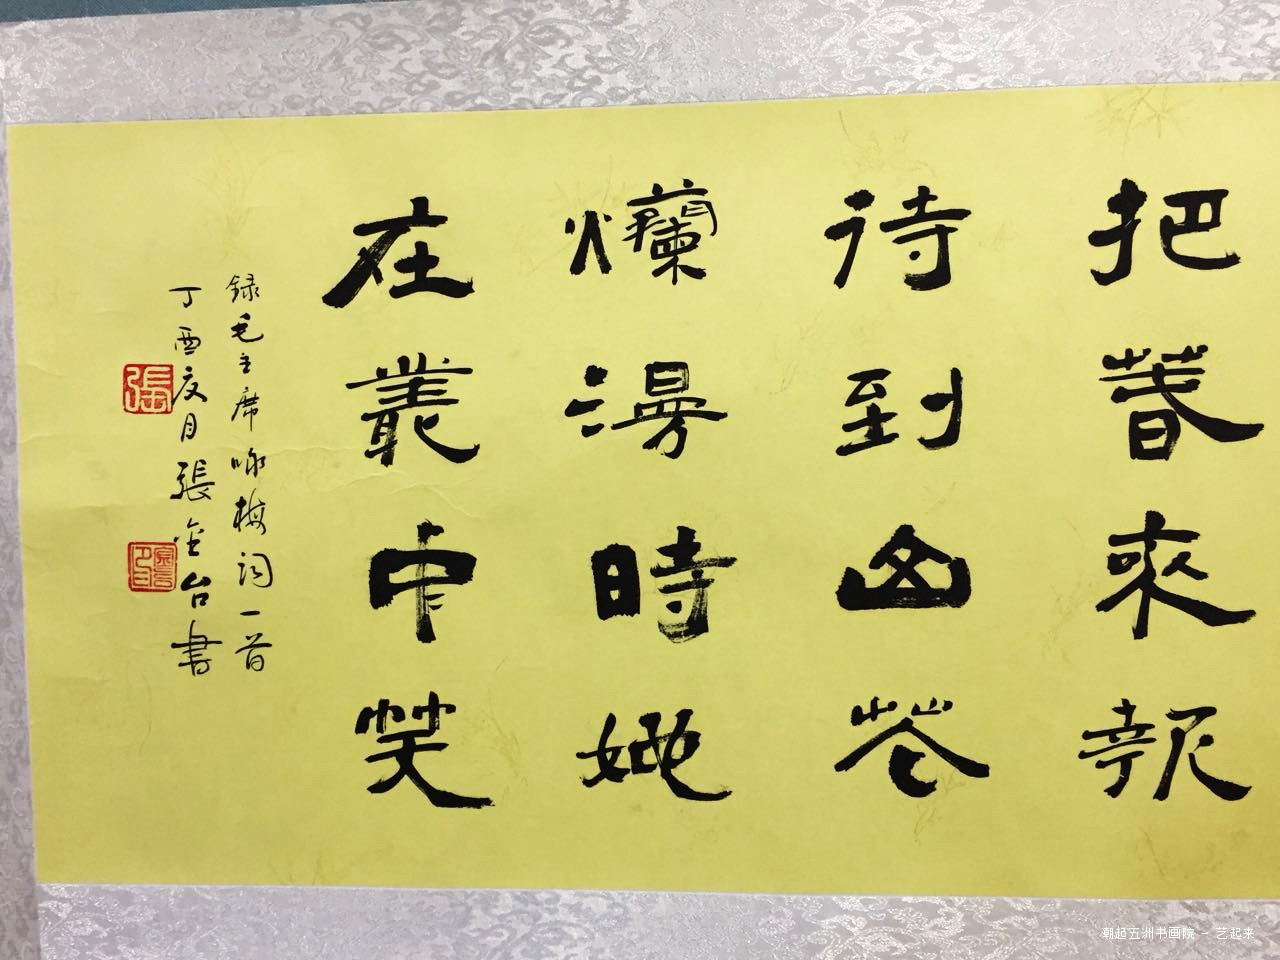 把春來報
待到山花
爛漫時她
在叢中笑
録毛主席咏梅词一首
丁酉夏月張金台書
張
朝起五洲书画院 - 艺起来